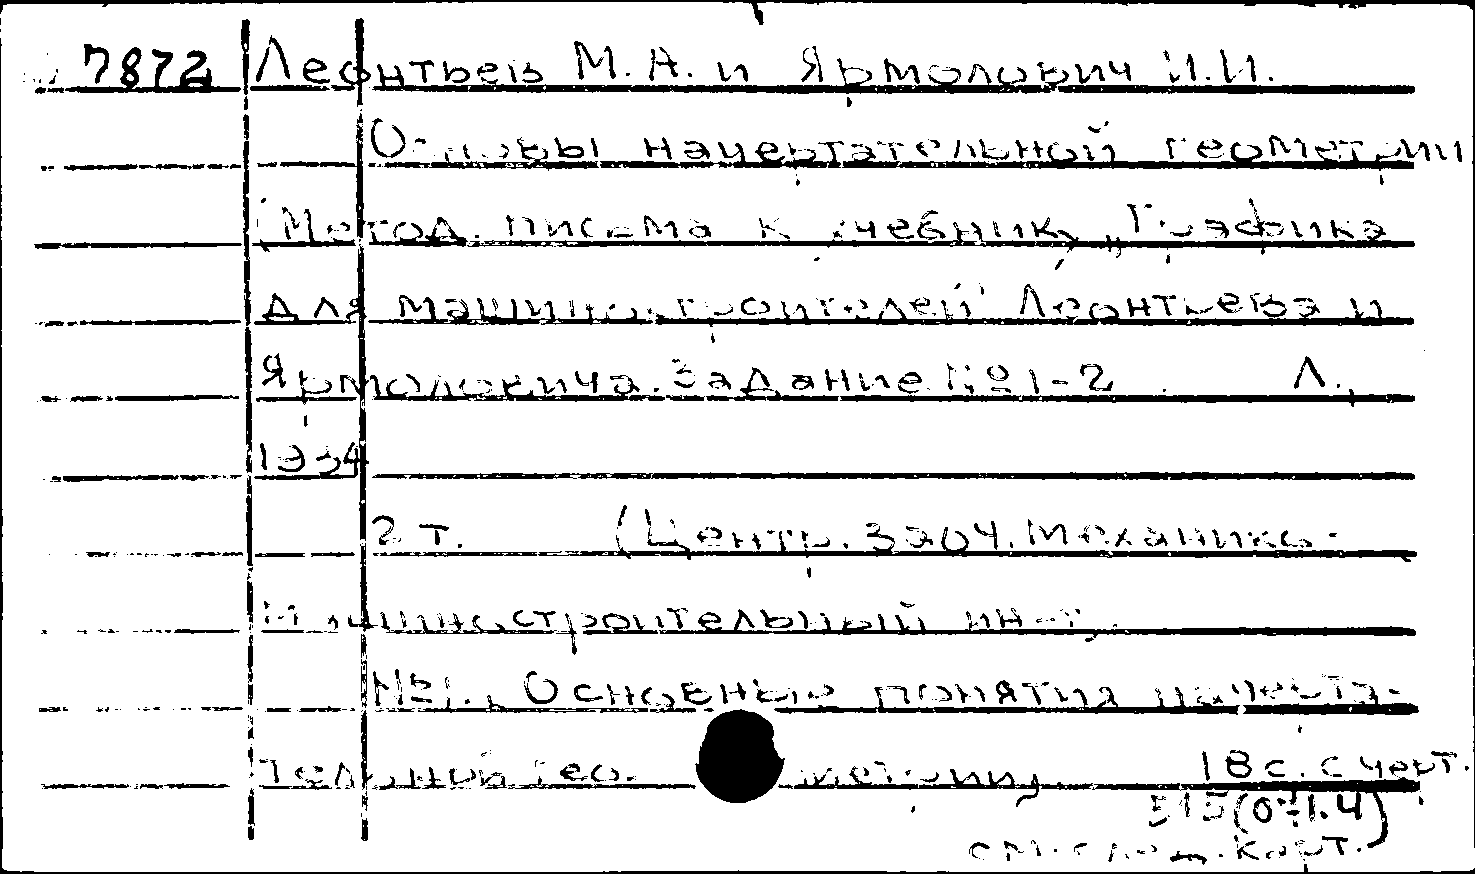 7872 Леонтьев М.А. и Ярмолович И.И.
Основы начертательной геометрии
(Метод. письма к учебнику „Графика
для машиностроителей" Леонтьева и
Ярмоловича. Задание №1-2. Л.,
1934
2 т. (Центр. заоч. механико-
машиностроительный ин-т).
№1., Основные понятия начерта-
тельной гео-метрии, 18 с. с черт.
515(071.4)
см. след. карт.